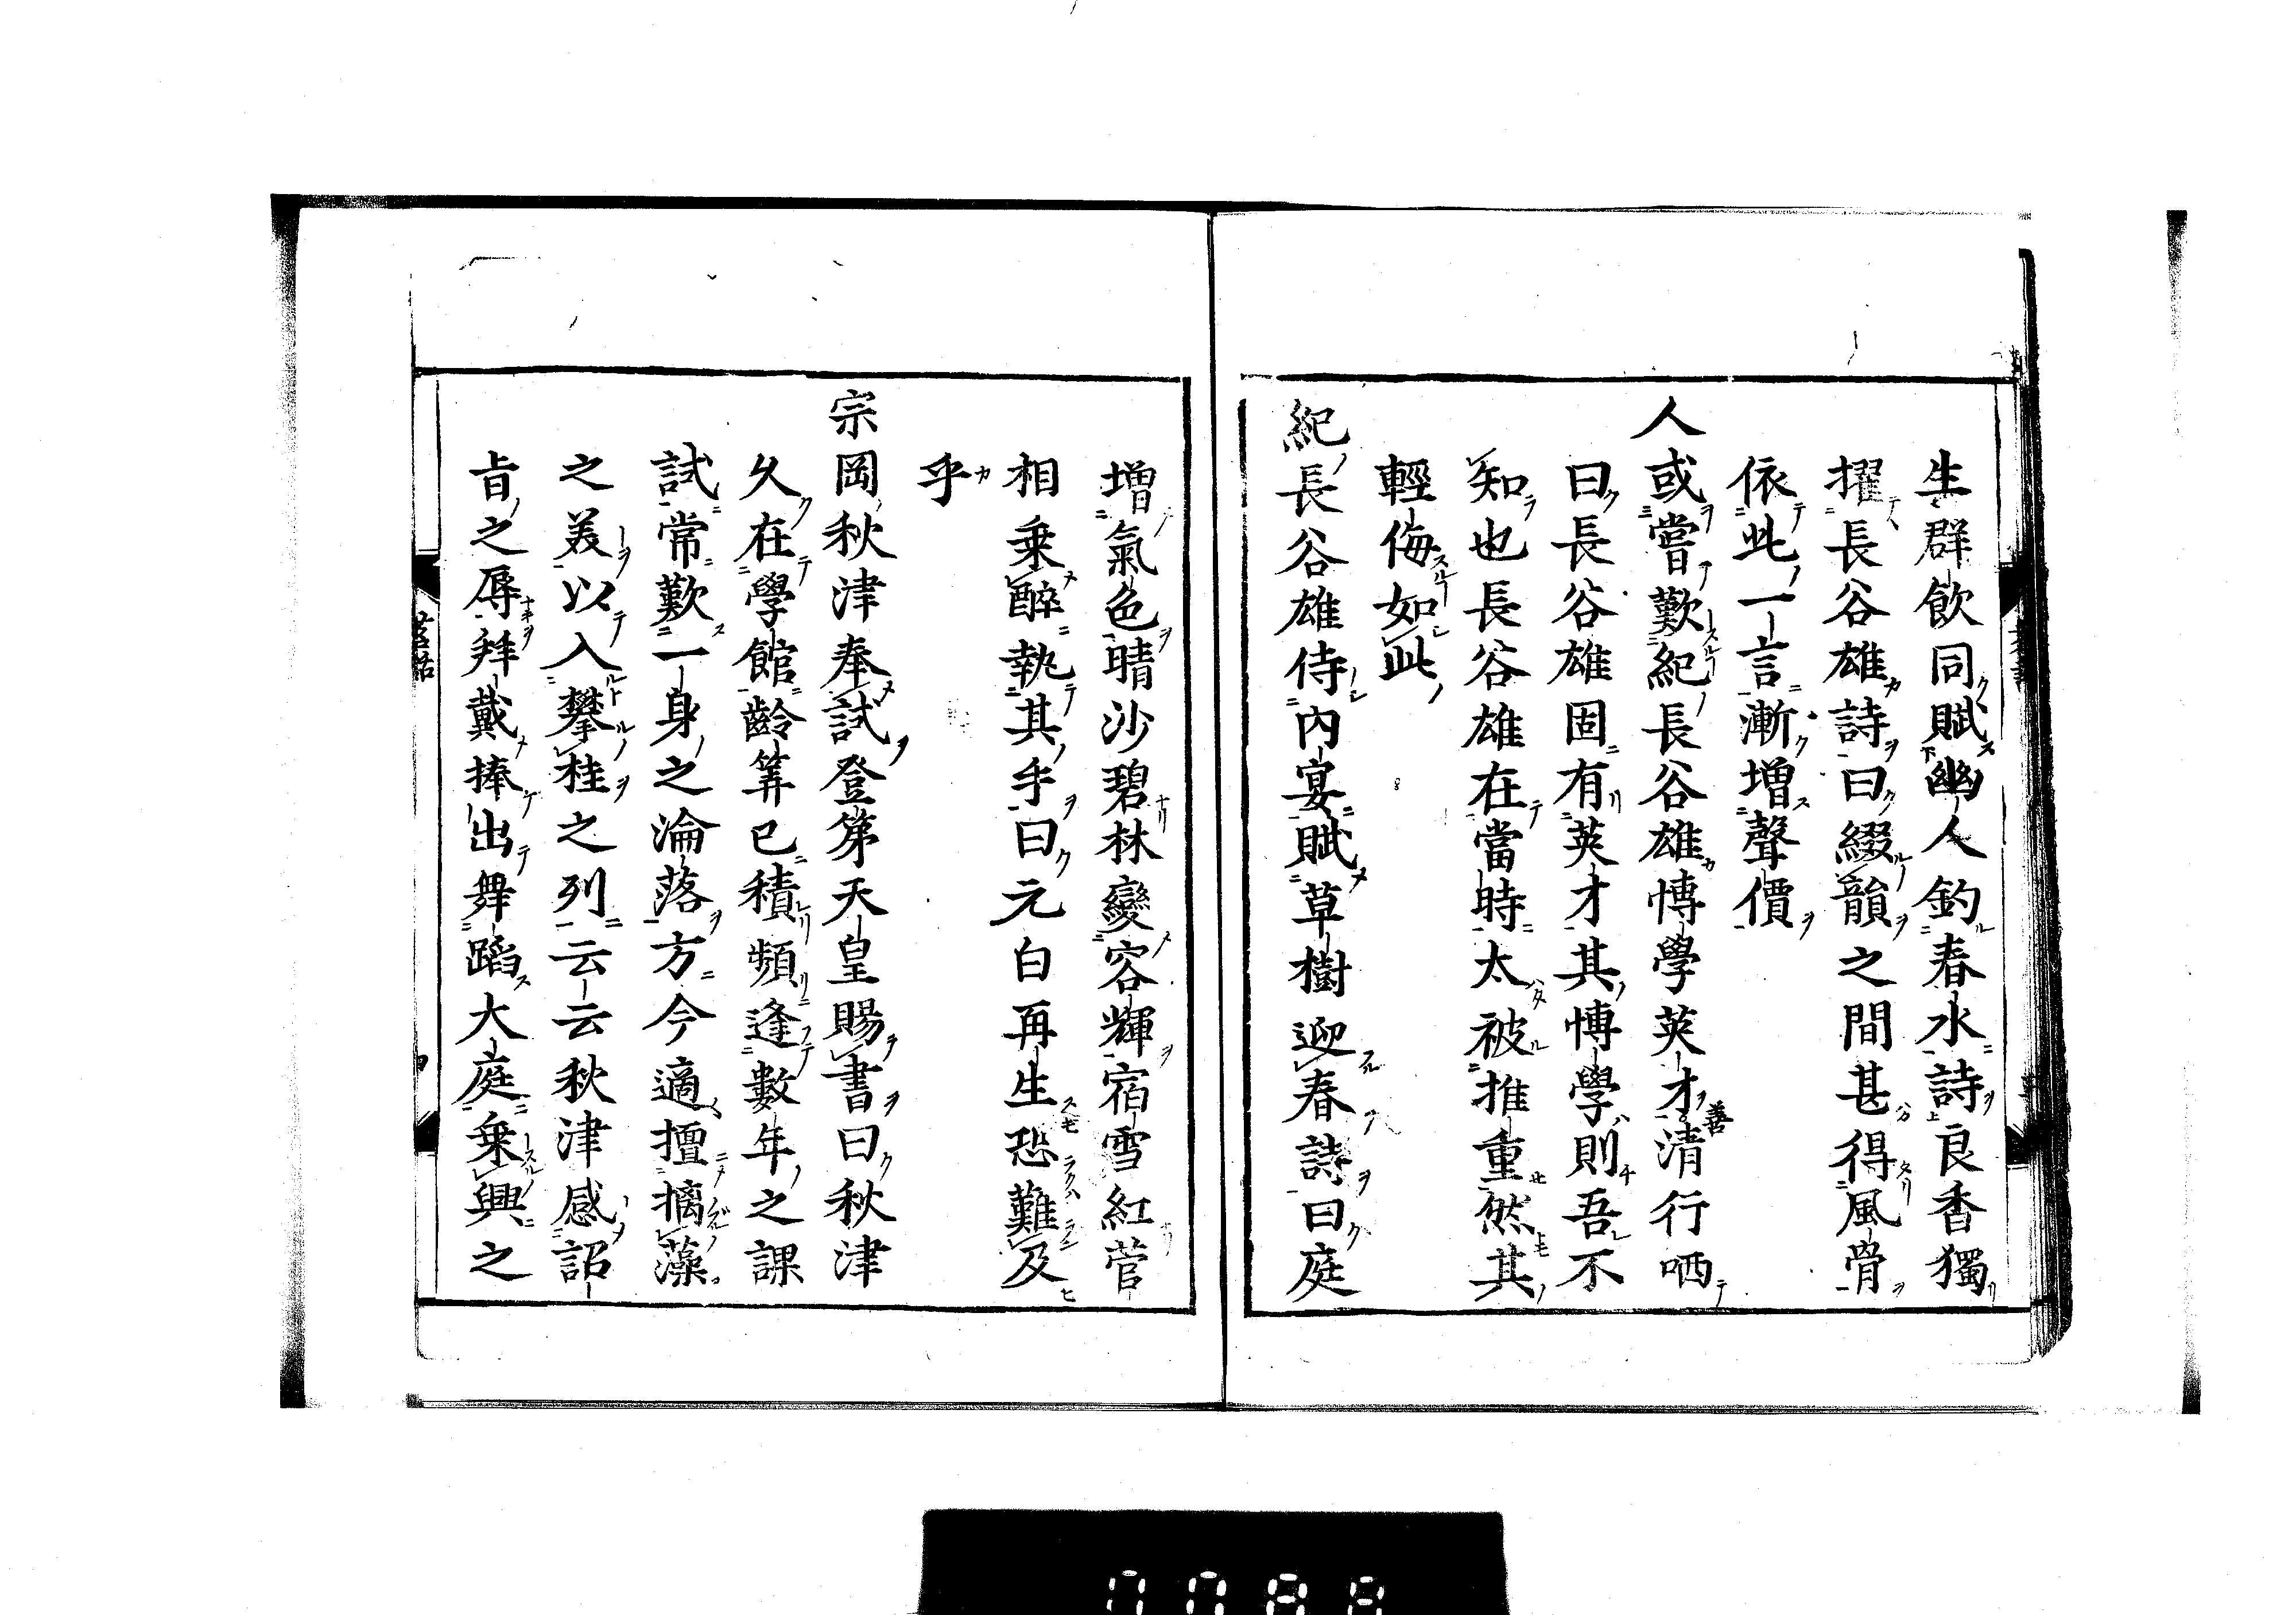 生群飲同賦幽人釣春水詩良香獨
擢長谷雄詩曰綴韻之間甚得風骨
依此一言漸增聲價
人或嘗歎紀長谷雄博學英才善清行哂
曰長谷雄固有英才其博學則吾不
知也長谷雄在當時太被推重然其
輕侮如此
紀長谷雄侍內宴賦草樹迎春詩曰庭
增氣色晴沙碧林變容輝宿雪紅菅
相乘醉執其手曰元白再生恐難及
乎
宗岡秋津奉試登第天皇賜書曰秋津
久在學館齡筭已積頻逢數年之課
試常歎一身之淪落方今適擅摛藻
之美以入攀桂之列云云秋津感詔
旨之辱拜戴捧出舞蹈大庭乘興之